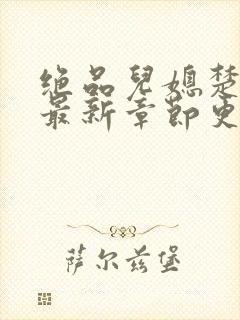 绝品兒媳楚
最新章节更
萨尔兹堡